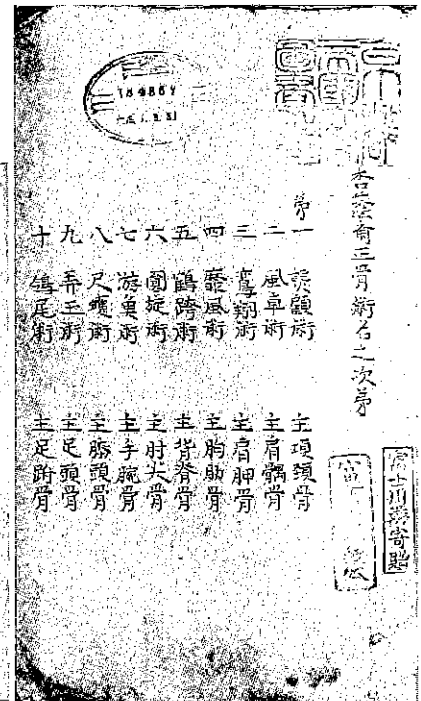 杏蔭齋正骨術名之次第
第一 熊顧術 主項頸骨
二 風車術 主肩髃骨
三 鸞翔術 主肩胛骨
四 靡風術 主胸肋骨
五 鶴跨術 主背脊骨
六 圓旋術 主肘尖骨
七 游魚術 主手腕骨
八 尺蠖術 主膝頭骨
九 弄玉術 主足頭骨
十 鴿尾術 主足跗骨
富士川游寄贈